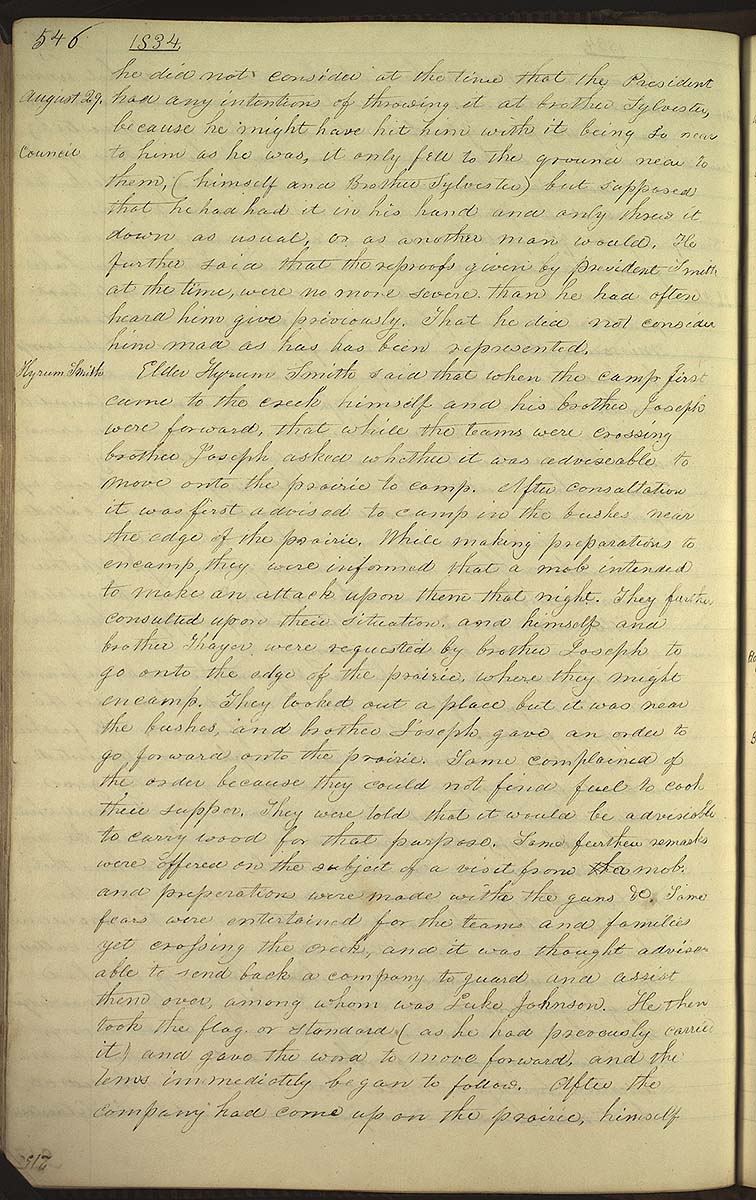 546 1834
he did not consider at the time that the President
August 29. had any intentions of throwing it at brother Sylvester,
because he might have hit him with it being so near
Council to him as he was, it only fell to the ground near to
them, (himself and Brother Sylvester) but supposed
that he had had it in his hand and only threw it
down as usual, or as another man would. He
further said that the reproofs given by president Smith
at the time, were no more severe than he had often
heard him give previously. That he did not consider
him mad as has has been represented.
Hyrum Smith Elder Hyrum Smith said that when the camp first
came to the creek himself and his brother Joseph
were forward, that while the teams were crossing
brother Joseph asked whether it was adviseable to
move onto the prairie to camp. After consaltation
it was first advised to camp in the bushes near
the edge of the prairie. While making preparations to
encamp, they were informed that a mob intended
to make an attack upon them that night. They further
consulted upon their situation, and himself and
brother Thayer were requested by brother Joseph to
go onto the edge of the prairie, where they might
encamp. They looked out a place but it was near
the bushes, and brother Joseph gave an order to
go forward onto the prairie. Some complained of
the order because they could not find fuel to cook
their supper. They were told that it would be adviseable
to carry wood for that purpose. Some further remarks
were offered on the subject of a visit from the mob.
and preperation were made with the guns &c. Some
fears were entertained for the teams and families
yet crossing the creek, and it was thought advise-
able to send back a company to guard and assist
them over, among whom was Luke Johnson. He then
took the flag or standard (as he had prevously carried
it) and gave the word to move forward, and the
tems immedictely began to follow. After the
company had come up on the prairie, himself